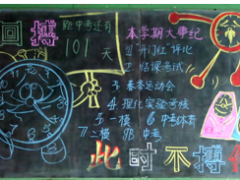 回搏
距中考还有
101天
本学期大事纪
1 开门红评比
2 临课考试
3 春季运动会
4 理化实验考核
5 一模 6 中考体育
7 二模 8 中考
此时不搏